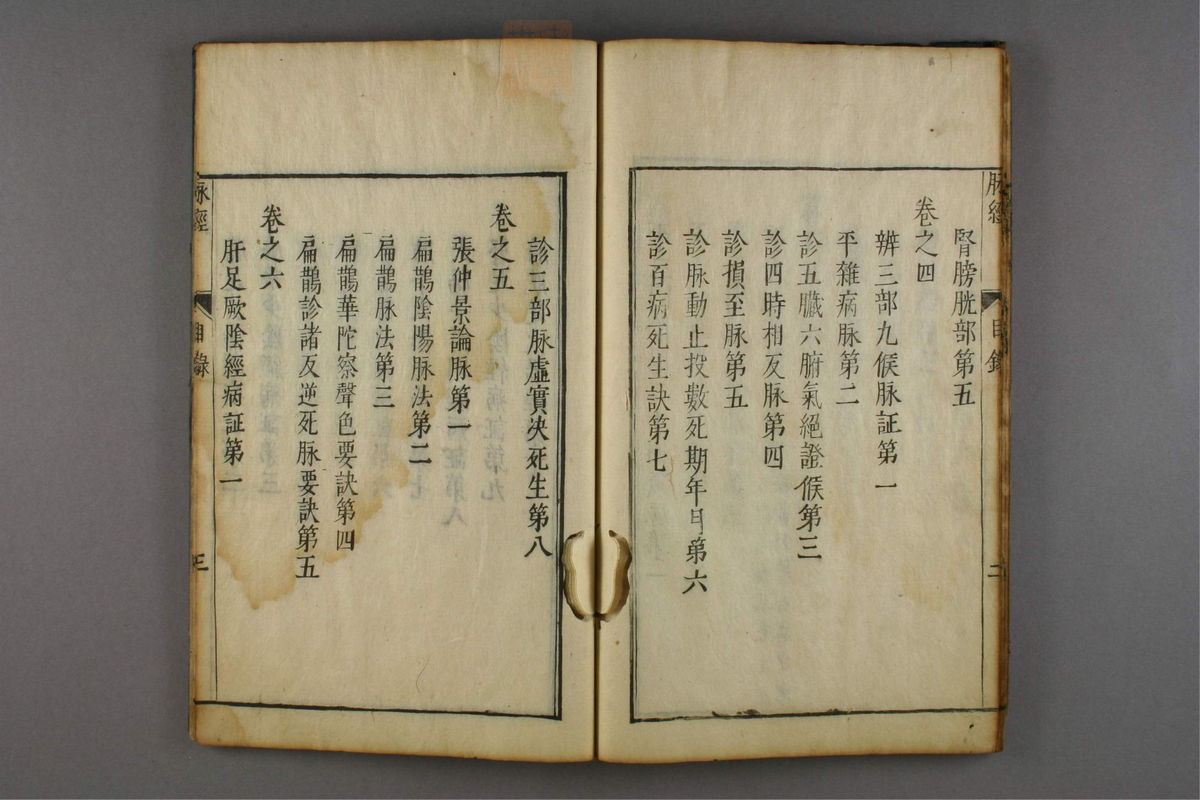 脉經
目錄
二
腎膀胱部第五
卷之四
辨三部九候脉証第一
平雜病脉第二
診五臟六腑氣絕證候第三
診四時相反脉第四
診損至脉第五
診脉動止投數死期年月第六
診百病死生訣第七
診三部脉虛實決死生第八
卷之五
張仲景論脉第一
扁鵲陰陽脉法第二
扁鵲脉法第三
扁鵲華陀察聲色要訣第四
扁鵲診諸反逆死脉要訣第五
卷之六
肝足厥陰經病証第一
脉經
目錄
三